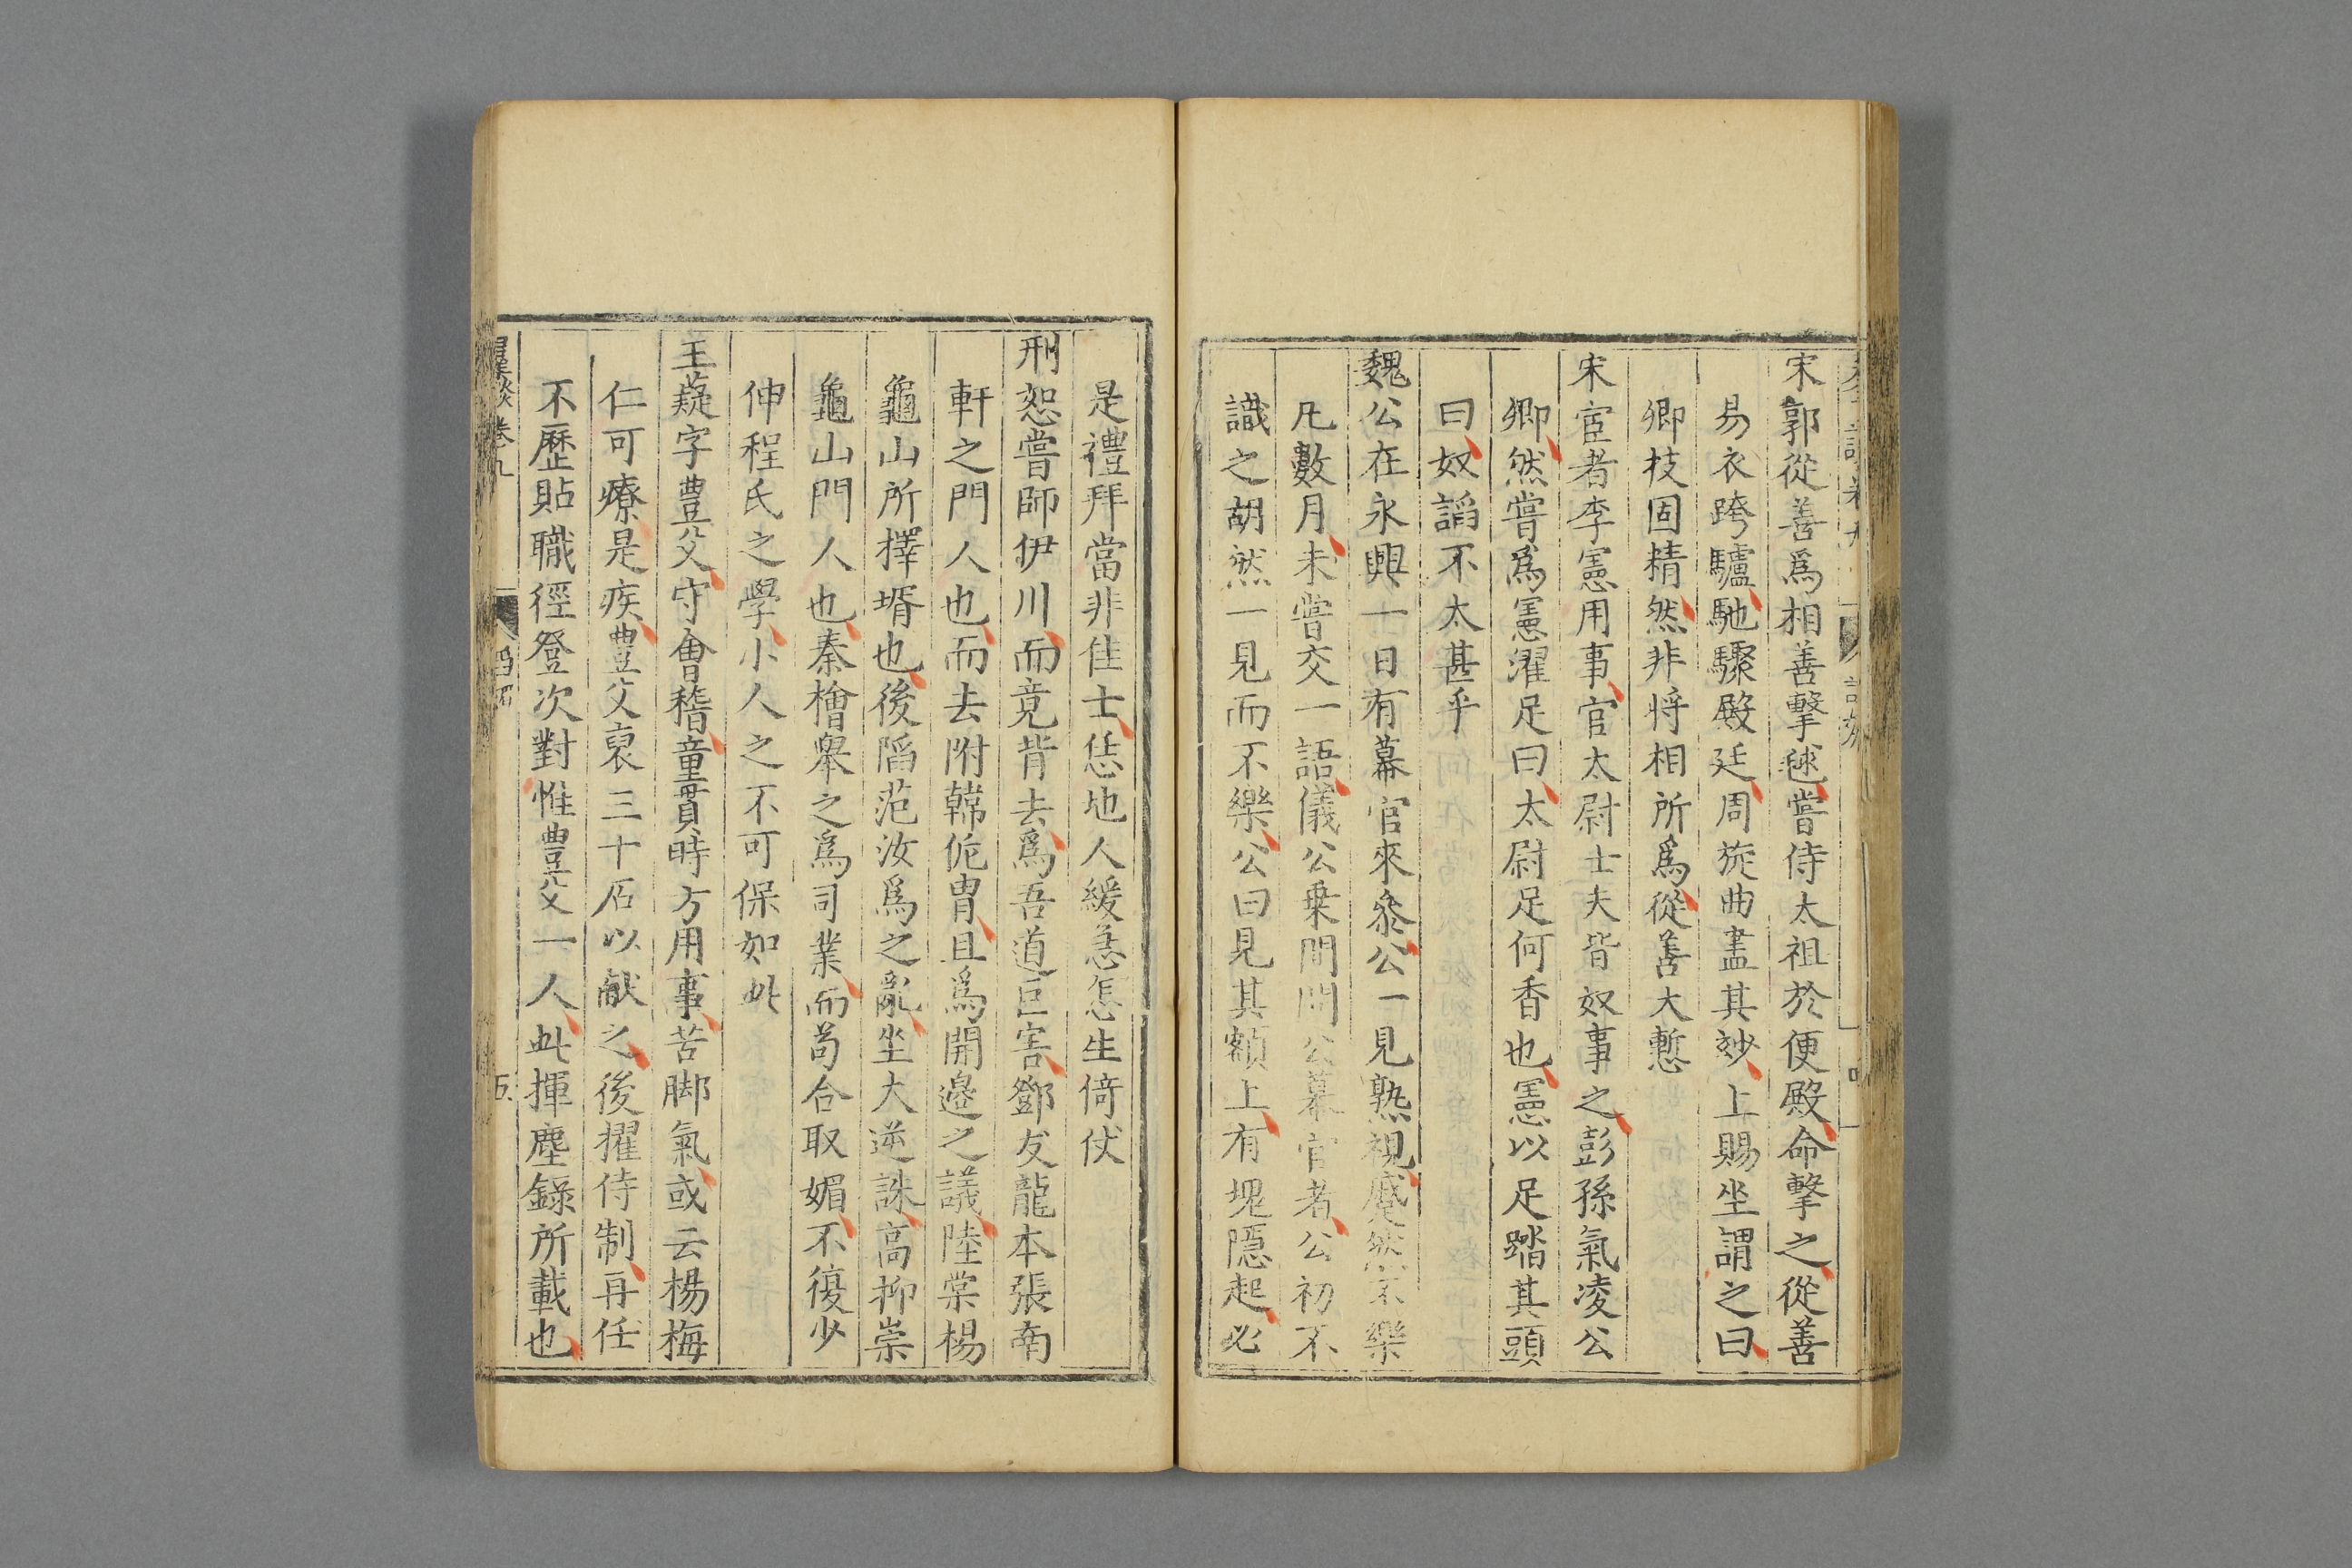 宋郭從善爲相善擊毬嘗侍太祖於便殿命擊之從善
易衣跨驢馳驟殿廷周旋曲盡其玅上賜坐謂之曰
卿技固精然非將相所爲從善大慙
宋宦者李憲用事官太尉士夫皆奴事之彭孫氣凌公
卿然嘗爲憲濯足曰太尉足何香也憲以足踏其頭
曰奴謟不太甚乎
魏公在永興一日有幕官來叅公一見熟視蹙然不樂
凡數月未嘗交一語儀公乗間問公幕官者公初不
識之胡然一見而不樂公曰見其額上有塊隠起必
是禮拜當非佳士恁地人緩急怎生倚仗
刑恕嘗師伊川而竟背去爲吾道巨害鄧友龍本張南
軒之門人也而去附韓侂冑且爲開邉之議陸棠楊
龜山所擇壻也後䧟范汝爲之亂坐大逆誅高抑崇
龜山門人也秦檜舉之爲司業而茍合取媚不復少
伸程氏之學小人之不可保如此
王薿字豊父守會稽童貫時方用事苦脚氣或云楊梅
仁可療是疾豊父裒三十石以獻之後擢待制再任
不歷貼職徑登次對惟豊父一人此揮塵錄所載也
卷九